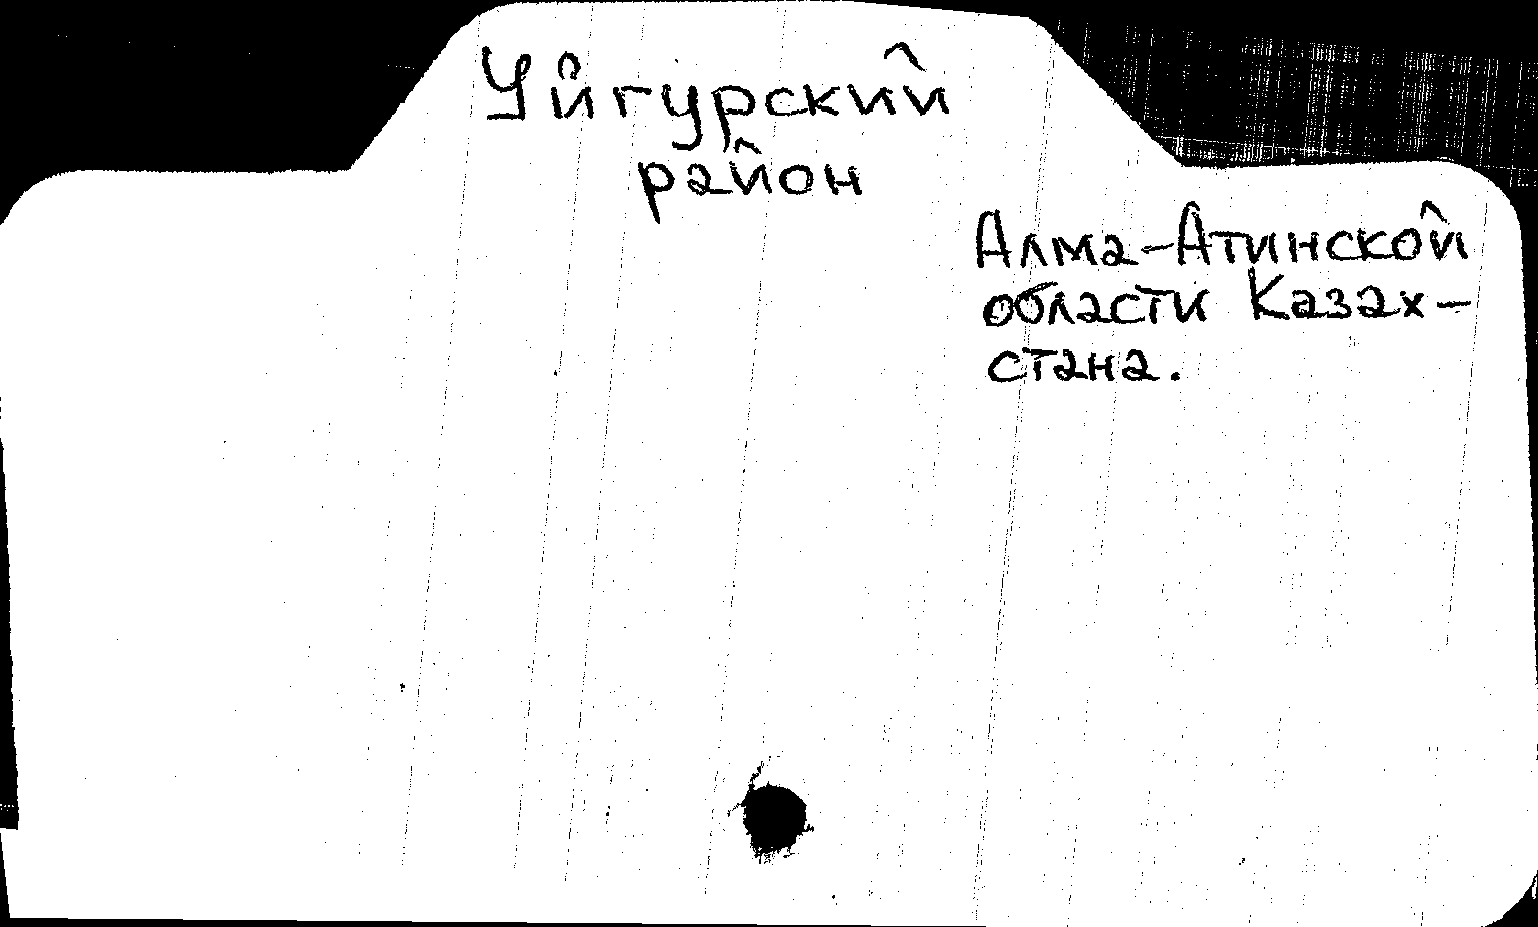 Уйгурский
район
Алма-Атинской
области Казах-
стана.